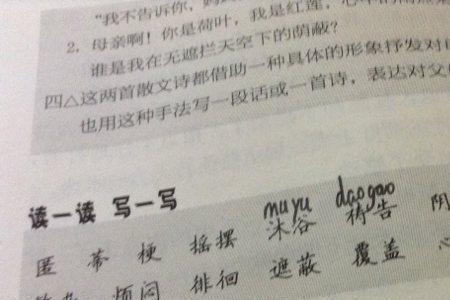 "我不告诉你，
2. 母亲啊！你是荷叶，我是红莲，心中的雨点来
谁是我在无遮拦天空下的荫蔽？
四△这两首散文诗都借助一种具体的形象抒发对
也用这种手法写一段话或一首诗，表达对父
读一读 写一写
muyu daogao
匿 蒂 梗 摇摆 沐浴 祷告 阴
烦闷 徘徊 遮蔽 覆盖 心